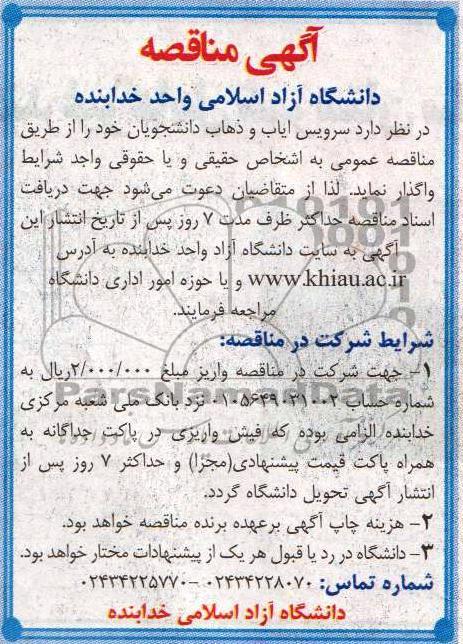 آگهی مناقصه
دانشگاه آزاد اسلامی واحد خدابنده
در نظر دارد سرویس ایاب و ذهاب دانشجویان خود را از طریق
مناقصه عمومی به اشخاص حقیقی و یا حقوقی واجد شرایط
واگذار نماید. لذا از متقاضیان دعوت می‌شود جهت دریافت
اسناد مناقصه حداکثر ظرف مدت ۷ روز پس از تاریخ انتشار این
آگهی به سایت دانشگاه آزاد واحد خدابنده به آدرس
www.khiau.ac.ir و یا حوزه امور اداری دانشگاه
مراجعه فرمایند.
شرایط شرکت در مناقصه:
۱- جهت شرکت در مناقصه واریز مبلغ ۲/۰۰۰/۰۰۰ریال به
شماره حساب ۰۱۰۵۶۴۹۰۳۱۰۰۲ نزد بانک ملی شعبه مرکزی
خدابنده الزامی بوده که فیش واریزی در پاکت جداگانه به
همراه پاکت قیمت پیشنهادی(مجزا) و حداکثر ۷ روز پس از
انتشار آگهی تحویل دانشگاه گردد.
۲- هزینه چاپ آگهی برعهده برنده مناقصه خواهد بود.
۳- دانشگاه در رد یا قبول هر یک از پیشنهادات مختار خواهد بود.
شماره تماس: ۰۲۴۳۴۲۲۸۰۷۰ -۰۲۴۳۴۲۲۵۷۷۰
دانشگاه آزاد اسلامی خدابنده
ParsNamadData